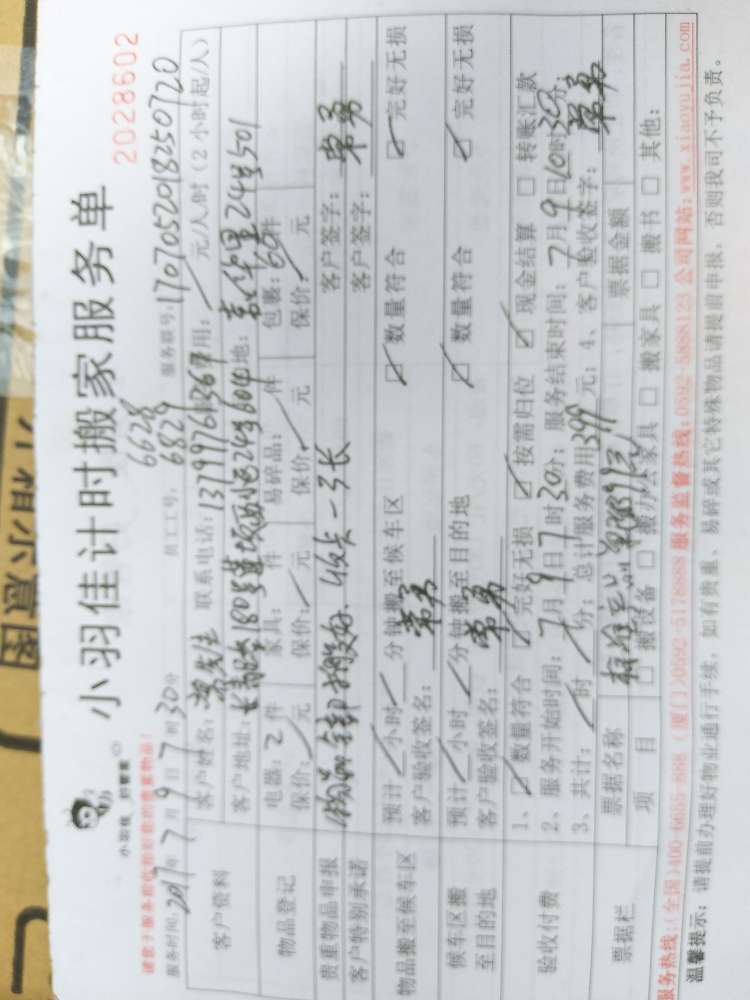 小羽佳计时搬家服务单
2028602
小羽佳 好管家
请您于服务前收拾好您的贵重物品!
6628
服务时间: 2017年7月9日7时30分 员工工号: 6829 服务联号: 1707052018250720
客户资料
客户姓名: 常先生 联系电话: 13799761367 费用: 元/人/时(2小时起/人)
客户地址: 24号604 地: 24号501
物品登记
电器: 2件 家具: 件 易碎品: 件 包裹: 60件
保价: 元 保价: 元 保价: 元 保价: 元
贵重物品申报 物品全部搬好. 客户签字: 常勇
客户特别承诺 客户签字:
物品搬至候车区
预计 小时 分钟搬至候车区 ☑ 数量符合 ☑ 完好无损
客户验收签名: 常勇
候车区搬至目的地
预计 小时 分钟搬至目的地 ☑ 数量符合 ☑ 完好无损
客户验收签名: 常勇
验收付费
1、☑ 数量符合 ☑ 完好无损 ☑ 按需归位 ☑ 现金结算 □ 转账汇款
2、服务开始时间: 7月9日7时30分; 服务结束时间: 7月9日10时30分;
3、共计: 时 分; 总计服务费用399元; 4、客户验收签字: 常勇
票据栏
票据名称 票据金额
项目 □ 搬设备 □ 搬办公家具 □ 搬家具 □ 搬书 □ 其他:
服务热线:(全国)400-6655-888 (厦门)0592-5178888 服务监督热线:0592-5888123 公司网站:www.xiaoyujia.com
温馨提示: 请提前办理好物业通行手续, 如有贵重、易碎或其它特殊物品请提前申报, 否则我司不予负责。